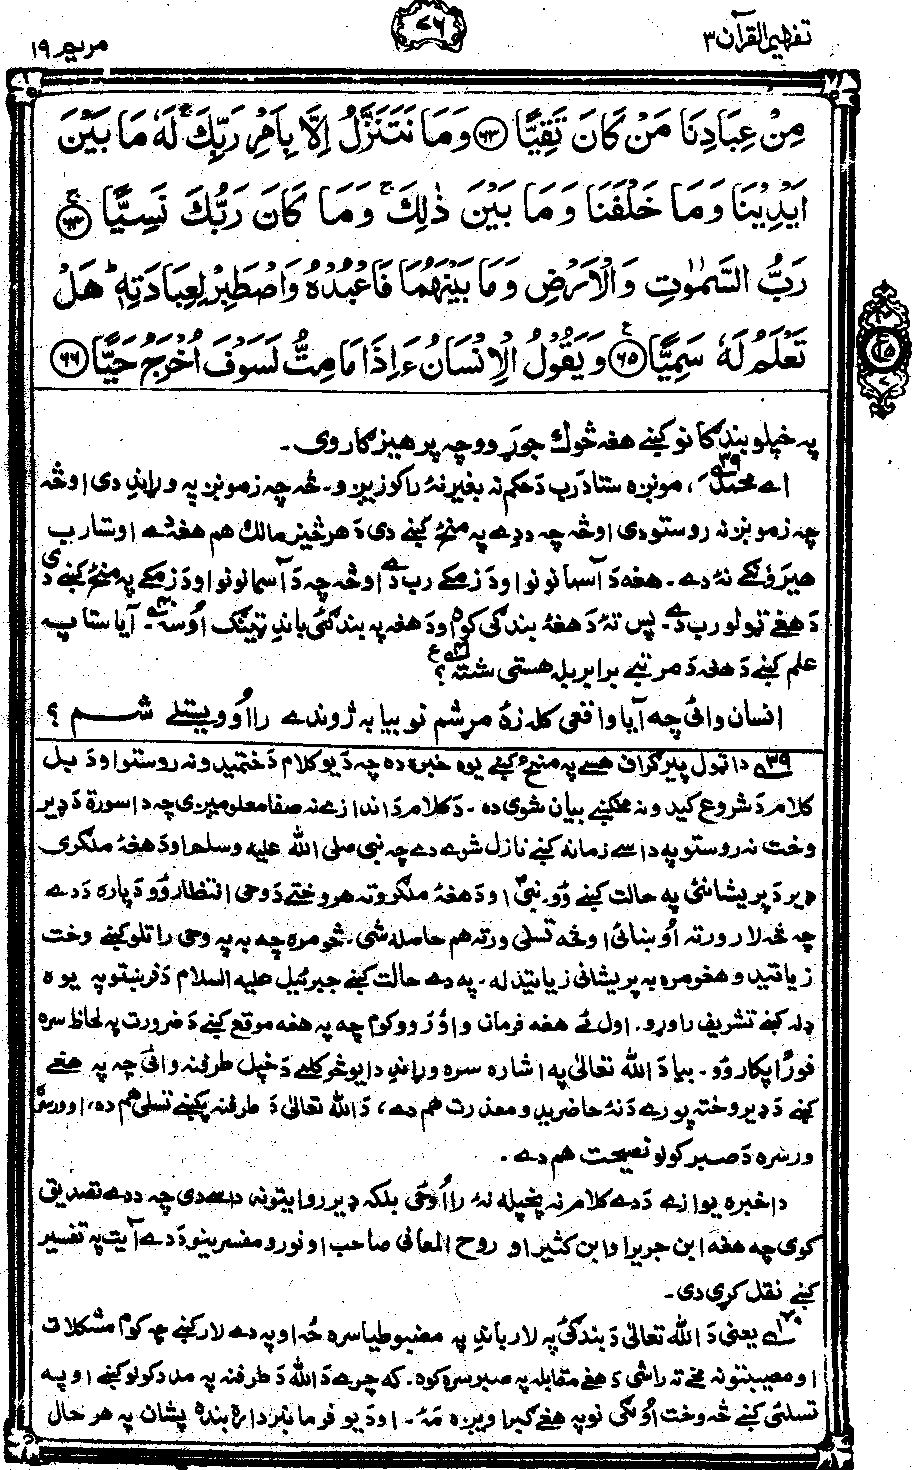 تفهيم القرآن ٣
٧٦
مريم ١٩
مِنْ عِبَادِنَا مَنْ كَانَ تَقِيًّا ﴿٦٣﴾ وَمَا نَتَنَزَّلُ اِلَّا بِاَمْرِ رَبِّكَ ۚ لَهٗ مَا بَيْنَ
اَيْدِيْنَا وَمَا خَلْفَنَا وَمَا بَيْنَ ذٰلِكَ ۚ وَمَا كَانَ رَبُّكَ نَسِيًّا ﴿٦٤﴾
رَبُّ السَّمٰوٰتِ وَالْاَرْضِ وَمَا بَيْنَهُمَا فَاعْبُدْهُ وَاصْطَبِرْ لِعِبَادَتِهٖ ؕ هَلْ
تَعْلَمُ لَهٗ سَمِيًّا ﴿٦٥﴾ وَيَقُوْلُ الْاِنْسَانُ ءَاِذَا مَا مِتُّ لَسَوْفَ اُخْرَجُ حَيًّا ﴿٦٦﴾
په خپلو بندګانو کښے هغه څوک جوړ ووچه پرهیزګار وی۔
اے محمدؐ ۳۹، مونږه ستا د رب د حکم نه بغیر نۀ راکوزیږو۔ څه چه زمونږ په وړاندې دی او څه
چه زمونږ نه روستو دی او څه چه د دې په منځ کښے دی د هر څیز مالک هم هغه دے او ستا رب
هیروونکے نۀ دے۔ هغه د آسمانونو او د زمکے رب دے او څه چه د آسمانونو او د زمکے په منځ کښے دی
د هغے ټولو رب دے۔ پس تۀ د هغۀ بندګی کوه او د هغه په بندګئ باندې ټینګ اوسه ۴۰۔ آیا ستا په
علم کښے د هغه د مرتبے برابر بله هستی شته ۴۱؟
انسان وائی چه آیا واقعی کله زۀ مړ شم نو بیا به ژوندے راأوویستلے شم ؟
۳۹ دا ټول پیرګراف هسے په منځ کښے یوه خبره ده چه د یو کلام د ختمیدو نه روستو او د بل
کلام د شروع کیدو نه مخکښے بیان شوی ده۔ د کلام د اندازے نه صفا معلومیږی چه دا سورة د ډیر
وخت نه روستو په داسے زمانه کښے نازل شوے دے چه نبی صلی الله علیه وسلم او د هغۀ ملګری
ډیر د پریشانئ په حالت کښے وو۔ نبیؐ او د هغۀ ملګرو ته هر وختے د وحی انتظار وو د پاره د دے
چه څه لار ورته أو ښائی او څه تسلی ورته هم حاصله شی۔ څومره چه به په وحی راتلو کښے وخت
زیاتیدو هغومره به پریشانی زیاتیدله۔ په دے حالت کښے جبرئیل علیه السلام د فرښتو په یوه
ډله کښے تشریف راوړو۔ اول ئے هغه فرمان واؤرولو کوم چه په هغه موقع کښے د ضرورت په لحاظ سره
فوراً پکار وو۔ بیا د الله تعالیٰ په اشاره سره وړاندې دا یو څو کلمے د خپل طرفنه وائی چه په هغے
کښے د ډیر وخته پورے د نۀ حاضریدو معذرت هم دے، د الله تعالیٰ د طرفنه پکښے تسلی هم ده، او ورسره
ورسره د صبر کولو نصیحت هم دے۔
دا خبره یوازے د دے کلام نه پخپله نۀ راأوځی بلکه ډیر روایتونه داسے دی چه د دے تصدیق
کوی چه هغه ابن جریر او ابن کثیر او روح المعانی صاحب او نورو مفسرینو د دے آیت په تفسیر
کښے نقل کړی دی۔
۴۰ یعنی د الله تعالیٰ د بندګئ په لار باندې په مضبوطیا سره ځه او په دے لار کښے چه کوم مشکلات
او مصیبتونه مخے ته راشی د هغے مقابله په صبر سره کوه۔ که چرے د الله د طرفنه په مدد کولو کښے او په
تسلئ کښے څه وخت أولګی نو په هغے ګبراویږه مۀ۔ او د یو فرمانبرداره بنده پشان په هر حال